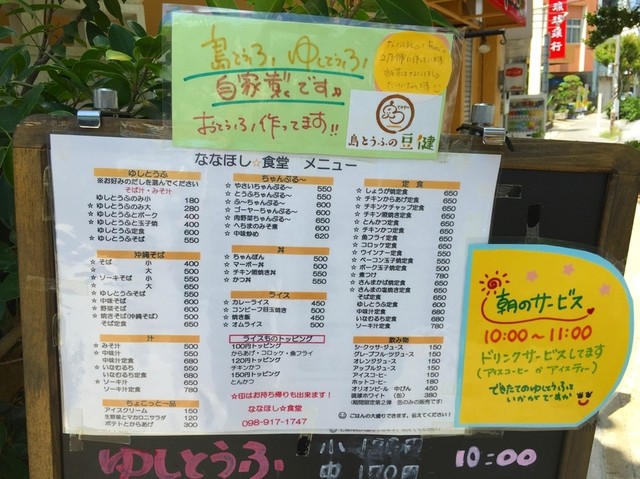 琉球銀行
島とうふ、ゆしどうふ
自家製です♪
おとうふ作ってます!!
島とうふの豆健
ななほし☆食堂 メニュー
ゆしとうふ
※お好みのだしを選んでください
そば汁・みそ汁
ゆしとうふのみ小 180
ゆしとうふのみ大 280
☆ ゆしとうふとポーク 400
☆ ゆしとうふと玉子焼 400
ゆしとうふ定食 600
☆ ゆしとうふそば 550
沖縄そば
☆ そば 小 400
☆ 大 500
☆ ソーキそば 小 550
☆ 大 650
☆ ゆしとうふそば 550
☆ 中味そば 650
☆ 野菜そば 600
☆ 焼きそば(沖縄そば) 600
そば定食 650
汁
☆ みそ汁 500
☆ 中味汁 550
中味汁定食 680
☆ いなむるち 550
いなむるち定食 680
☆ ソーキ汁 650
ソーキ汁定食 780
ちょこっと一品
アイスクリーム 150
生野菜とマカロニサラダ 200
ポテトとからあげ 300
ちゃんぷる～
☆ やさいちゃんぷる～ 550
☆ とうふちゃんぷる～ 550
☆ ふ～ちゃんぷる～ 600
☆ ゴーヤーちゃんぷる～ 600
☆ 肉野菜ちゃんぷる～ 650
☆ へちまのみそ煮 600
☆ 中味炒め 620
丼
☆ ちゃんぽん 550
☆ マーボー丼 550
☆ チキン照焼き丼 550
☆ かつ丼 550
ライス
☆ カレーライス 450
☆ コンビーフ目玉焼き 500
☆ 焼き飯 450
☆ オムライス 500
ライス類のトッピング
100円トッピング
からあげ・コロッケ・魚フライ
120円トッピング
チキンかつ
150円トッピング
とんかつ
☆印はお持ち帰りも出来ます!
ななほし☆食堂
098-917-1747
定食
☆ しょうが焼定食 650
☆ チキンからあげ定食 650
☆ チキンケチャップ定食 650
☆ チキン照焼き定食 650
☆ とんかつ定食 650
☆ チキンかつ定食 650
☆ 魚フライ定食 650
☆ コロッケ定食 650
☆ ウインナー定食 550
☆ ベーコン玉子焼定食 550
☆ ポーク玉子焼定食 550
☆ 煮つけ 780
☆ さんまかば焼定食 650
☆ さんまの塩焼き定食 650
そば定食 650
ゆしとうふ定食 600
中味汁定食 680
いなむるち定食 680
ソーキ汁定食 780
飲み物
シークヮサージュース
グレープフルーツジュース
オレンジジュース
アップルジュース
アイスコーヒー
ホットコーヒー
オリオンビール 中びん
琉球ホワイト (缶)
ごはんの大盛りできます。伝えてください!
朝のサービス
10:00～11:00
ドリンクサービスしてます
(アイスコーヒー か アイスティー)
できたてのゆしどうふ
いかがですか
ゆしとうふ 小 120円
中 170円
10:00